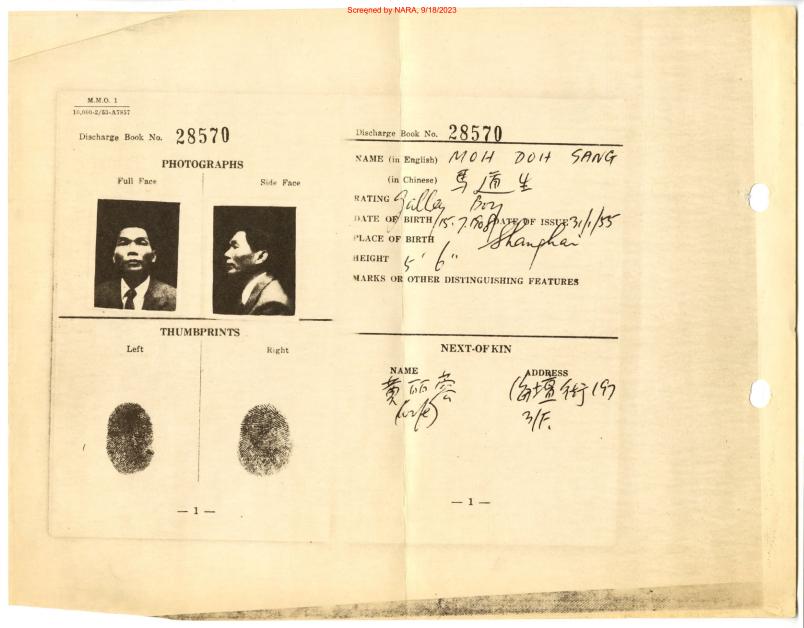 Screened by NARA, 9/18/2023
M.M.O. 1
10,000-2/53-A7857
Discharge Book No. 28570
PHOTOGRAPHS
Full Face
Side Face
THUMBPRINTS
Left
Right
— 1 —
Discharge Book No. 28570
NAME (in English) MOH DOH SANG
(in Chinese) 馬道生
RATING Galley Boy
DATE OF BIRTH 15.7.1908 DATE OF ISSUE 31/1/55
PLACE OF BIRTH Shanghai
HEIGHT 5' 6"
MARKS OR OTHER DISTINGUISHING FEATURES
NEXT-OF KIN
NAME
ADDRESS
黄丽蓉
海壇街197
(wife)
3/F.
— 1 —